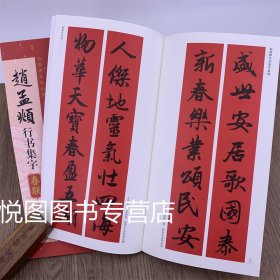 趙孟頫
行书集字
春聯
盛世安居歌國泰
新春樂業頌民安
人傑地靈氣壯四海
物華天寶春盈五
悦图图书专营店